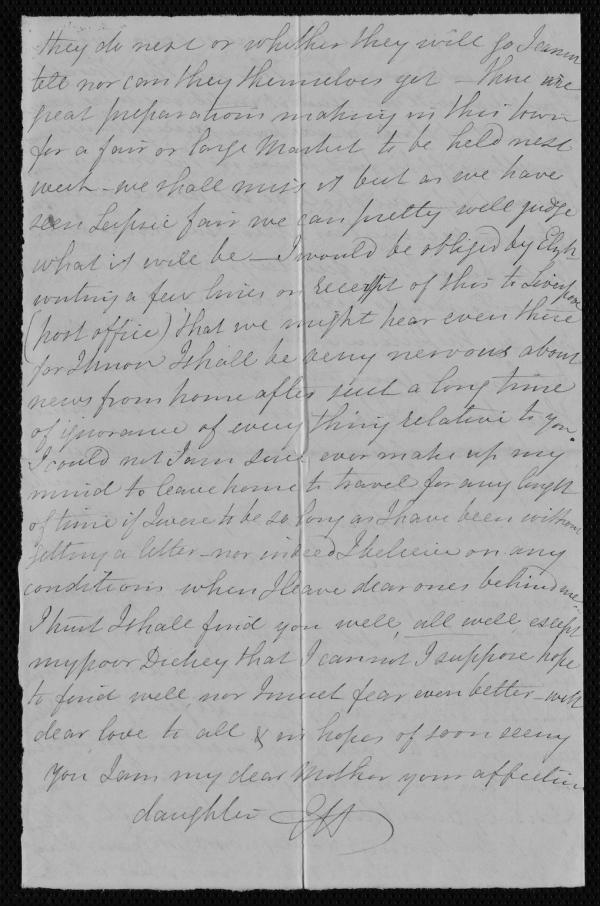 they do next or whether they will go I cannot
tell nor can they themselves yet - there are
great preparations making in this town
for a fair or large Market to be held next
week - we shall miss it but as we have
seen Leipsic fair we can pretty well judge
what it will be - I would be obliged by
writing a few lines on receipt of this to Liverpool
(post office) that we might hear even there
for I know I shall be very nervous about
news from home after such a long time
of ignorance of every thing relative to you.
I could not I am sure ever make up my
mind to leave home to travel for any length
of time if I were to be so long as I have been without
getting a letter - nor indeed I believe on any
conditions when I leave dear ones behind me -
I trust I shall find you well, all well, except
my poor Dickey that I cannot I suppose hope
to find well nor I must fear even better - with
dear love to all & in hopes of soon seeing
you I am my dear Mother your affection
daughter